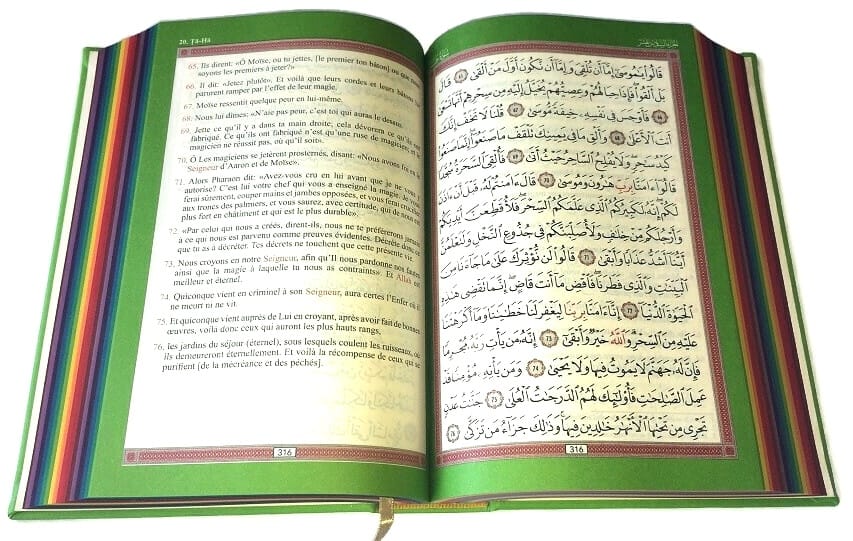 20. Ṭā-Hā
65. Ils dirent: «Ô Moïse, ou tu jettes, [le premier ton bâton] ou que nous
soyons les premiers à jeter?»
66. Il dit: «Jetez plutôt». Et voilà que leurs cordes et leurs bâtons lui
parurent ramper par l'effet de leur magie.
67. Moïse ressentit quelque peur en lui-même.
68. Nous lui dîmes: «N'aie pas peur, c'est toi qui auras le dessus.
69. Jette ce qu'il y a dans ta main droite; cela dévorera ce qu'ils ont
fabriqué. Ce qu'ils ont fabriqué n'est qu'une ruse de magicien; et le
magicien ne réussit pas, où qu'il soit».
70. Ô Les magiciens se jetèrent prosternés, disant: «Nous avons foi en le
Seigneur d'Aaron et de Moïse».
71. Alors Pharaon dit: «Avez-vous cru en lui avant que je ne vous y
autorise? C'est lui votre chef qui vous a enseigné la magie. Je vous
ferai sûrement, couper mains et jambes opposées, et vous ferai crucifier
aux troncs des palmiers, et vous saurez, avec certitude, qui de nous est
plus fort en châtiment et qui est le plus durable».
72. «Par celui qui nous a créés, dirent-ils, nous ne te préférerons jamais
à ce qui nous est parvenu comme preuves évidentes. Décrète donc ce
que tu as à décréter. Tes décrets ne touchent que cette présente vie.
73. Nous croyons en notre Seigneur, afin qu'Il nous pardonne nos fautes
ainsi que la magie à laquelle tu nous as contraints». Et Allah est
meilleur et éternel.
74. Quiconque vient en criminel à son Seigneur, aura certes l'Enfer où il
ne meurt ni ne vit.
75. Et quiconque vient auprès de Lui en croyant, après avoir fait de bonnes
œuvres, voilà donc ceux qui auront les plus hauts rangs,
76. les jardins du séjour (éternel), sous lesquels coulent les ruisseaux, où
ils demeureront éternellement. Et voilà la récompense de ceux qui se
purifient [de la mécréance et des péchés].
316
قَالُوا۟ يَـٰمُوسَىٰٓ إِمَّآ أَن تُلْقِىَ وَإِمَّآ أَن نَّكُونَ أَوَّلَ مَنْ أَلْقَىٰ ٦٥ قَالَ
بَلْ أَلْقُوا۟ فَإِذَا حِبَالُهُمْ وَعِصِيُّهُمْ يُخَيَّلُ إِلَيْهِ مِن سِحْرِهِمْ أَنَّهَا تَسْعَىٰ
٦٦ فَأَوْجَسَ فِى نَفْسِهِۦ خِيفَةً مُّوسَىٰ ٦٧ قُلْنَا لَا تَخَفْ إِنَّكَ
أَنتَ ٱلْأَعْلَىٰ ٦٨ وَأَلْقِ مَا فِى يَمِينِكَ تَلْقَفْ مَا صَنَعُوٓا۟ إِنَّمَا صَنَعُوا۟
كَيْدُ سَـٰحِرٍ وَلَا يُفْلِحُ ٱلسَّاحِرُ حَيْثُ أَتَىٰ ٦٩ فَأُلْقِىَ ٱلسَّحَرَةُ سُجَّدًا
قَالُوٓا۟ ءَامَنَّا بِرَبِّ هَـٰرُونَ وَمُوسَىٰ ٧٠ قَالَ ءَامَنتُمْ لَهُۥ قَبْلَ أَنْ ءَاذَنَ
لَكُمْ إِنَّهُۥ لَكَبِيرُكُمُ ٱلَّذِى عَلَّمَكُمُ ٱلسِّحْرَ فَلَأُقَطِّعَنَّ أَيْدِيَكُمْ
وَأَرْجُلَكُم مِّنْ خِلَـٰفٍ وَلَأُصَلِّبَنَّكُمْ فِى جُذُوعِ ٱلنَّخْلِ وَلَتَعْلَمُنَّ
أَيُّنَآ أَشَدُّ عَذَابًا وَأَبْقَىٰ ٧١ قَالُوا۟ لَن نُّؤْثِرَكَ عَلَىٰ مَا جَآءَنَا مِنَ
ٱلْبَيِّنَـٰتِ وَٱلَّذِى فَطَرَنَا فَٱقْضِ مَآ أَنتَ قَاضٍ إِنَّمَا تَقْضِى هَـٰذِهِ
ٱلْحَيَوٰةَ ٱلدُّنْيَآ ٧٢ إِنَّآ ءَامَنَّا بِرَبِّنَا لِيَغْفِرَ لَنَا خَطَـٰيَـٰنَا وَمَآ أَكْرَهْتَنَا
عَلَيْهِ مِنَ ٱلسِّحْرِ وَٱللَّهُ خَيْرٌ وَأَبْقَىٰٓ ٧٣ إِنَّهُۥ مَن يَأْتِ رَبَّهُۥ مُجْرِمًا
فَإِنَّ لَهُۥ جَهَنَّمَ لَا يَمُوتُ فِيهَا وَلَا يَحْيَىٰ ٧٤ وَمَن يَأْتِهِۦ مُؤْمِنًا قَدْ
عَمِلَ ٱلصَّـٰلِحَـٰتِ فَأُو۟لَـٰٓئِكَ لَهُمُ ٱلدَّرَجَـٰتُ ٱلْعُلَىٰ ٧٥ جَنَّـٰتُ عَدْنٍ
تَجْرِى مِن تَحْتِهَا ٱلْأَنْهَـٰرُ خَـٰلِدِينَ فِيهَا وَذَٰلِكَ جَزَآءُ مَن تَزَكَّىٰ ٧٦
316